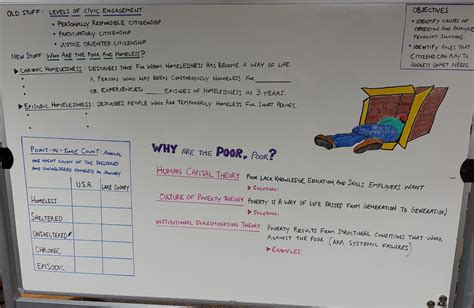 OLD STUFF: LEVELS OF CIVIC ENGAGEMENT
• PERSONALLY RESPONSIBLE CITIZENSHIP
• PARTICIPATORY CITIZENSHIP
• JUSTICE ORIENTED CITIZENSHIP
NEW STUFF: WHO ARE THE POOR AND HOMELESS?
▶ CHRONIC HOMELESSNESS: DESCRIBES THOSE FOR WHOM HOMELESSNESS HAS BECOME A WAY OF LIFE.
• A PERSON WHO HAS BEEN CONTINUOUSLY HOMELESS FOR ________
• OR EXPERIENCED ____ EPISODES OF HOMELESSNESS IN 3 YEARS.
▶ EPISODIC HOMELESSNESS: DESCRIBES PEOPLE WHO ARE TEMPORARILY HOMELESS FOR SHORT PERIODS.
OBJECTIVES
• IDENTIFY CAUSES OF
OPPRESSION AND
PROPOSE SOLUTIONS.
• IDENTIFY ROLES THAT
CITIZENS CAN PLAY TO
ADDRESS UNMET NEEDS.
POINT-IN-TIME COUNT: ANNUAL
ONE NIGHT COUNT OF THE SHELTERED
AND UNSHELTERED HOMELESS IN JANUARY
U.S.A. LAKE COUNTY
HOMELESS
SHELTERED
UNSHELTERED
CHRONIC
EPISODIC
WHY ARE THE POOR, POOR?
HUMAN CAPITAL THEORY POOR LACK KNOWLEDGE, EDUCATION AND SKILLS EMPLOYERS WANT
▶ SOLUTION:
CULTURE OF POVERTY THEORY POVERTY IS A WAY OF LIFE PASSED FROM GENERATION TO GENERATION
▶ SOLUTION:
INSTITUTIONAL DISCRIMINATION THEORY POVERTY RESULTS FROM STRUCTURAL CONDITIONS THAT WORK
AGAINST THE POOR (AKA SYSTEMIC FAILURES)
▶ EXAMPLES: